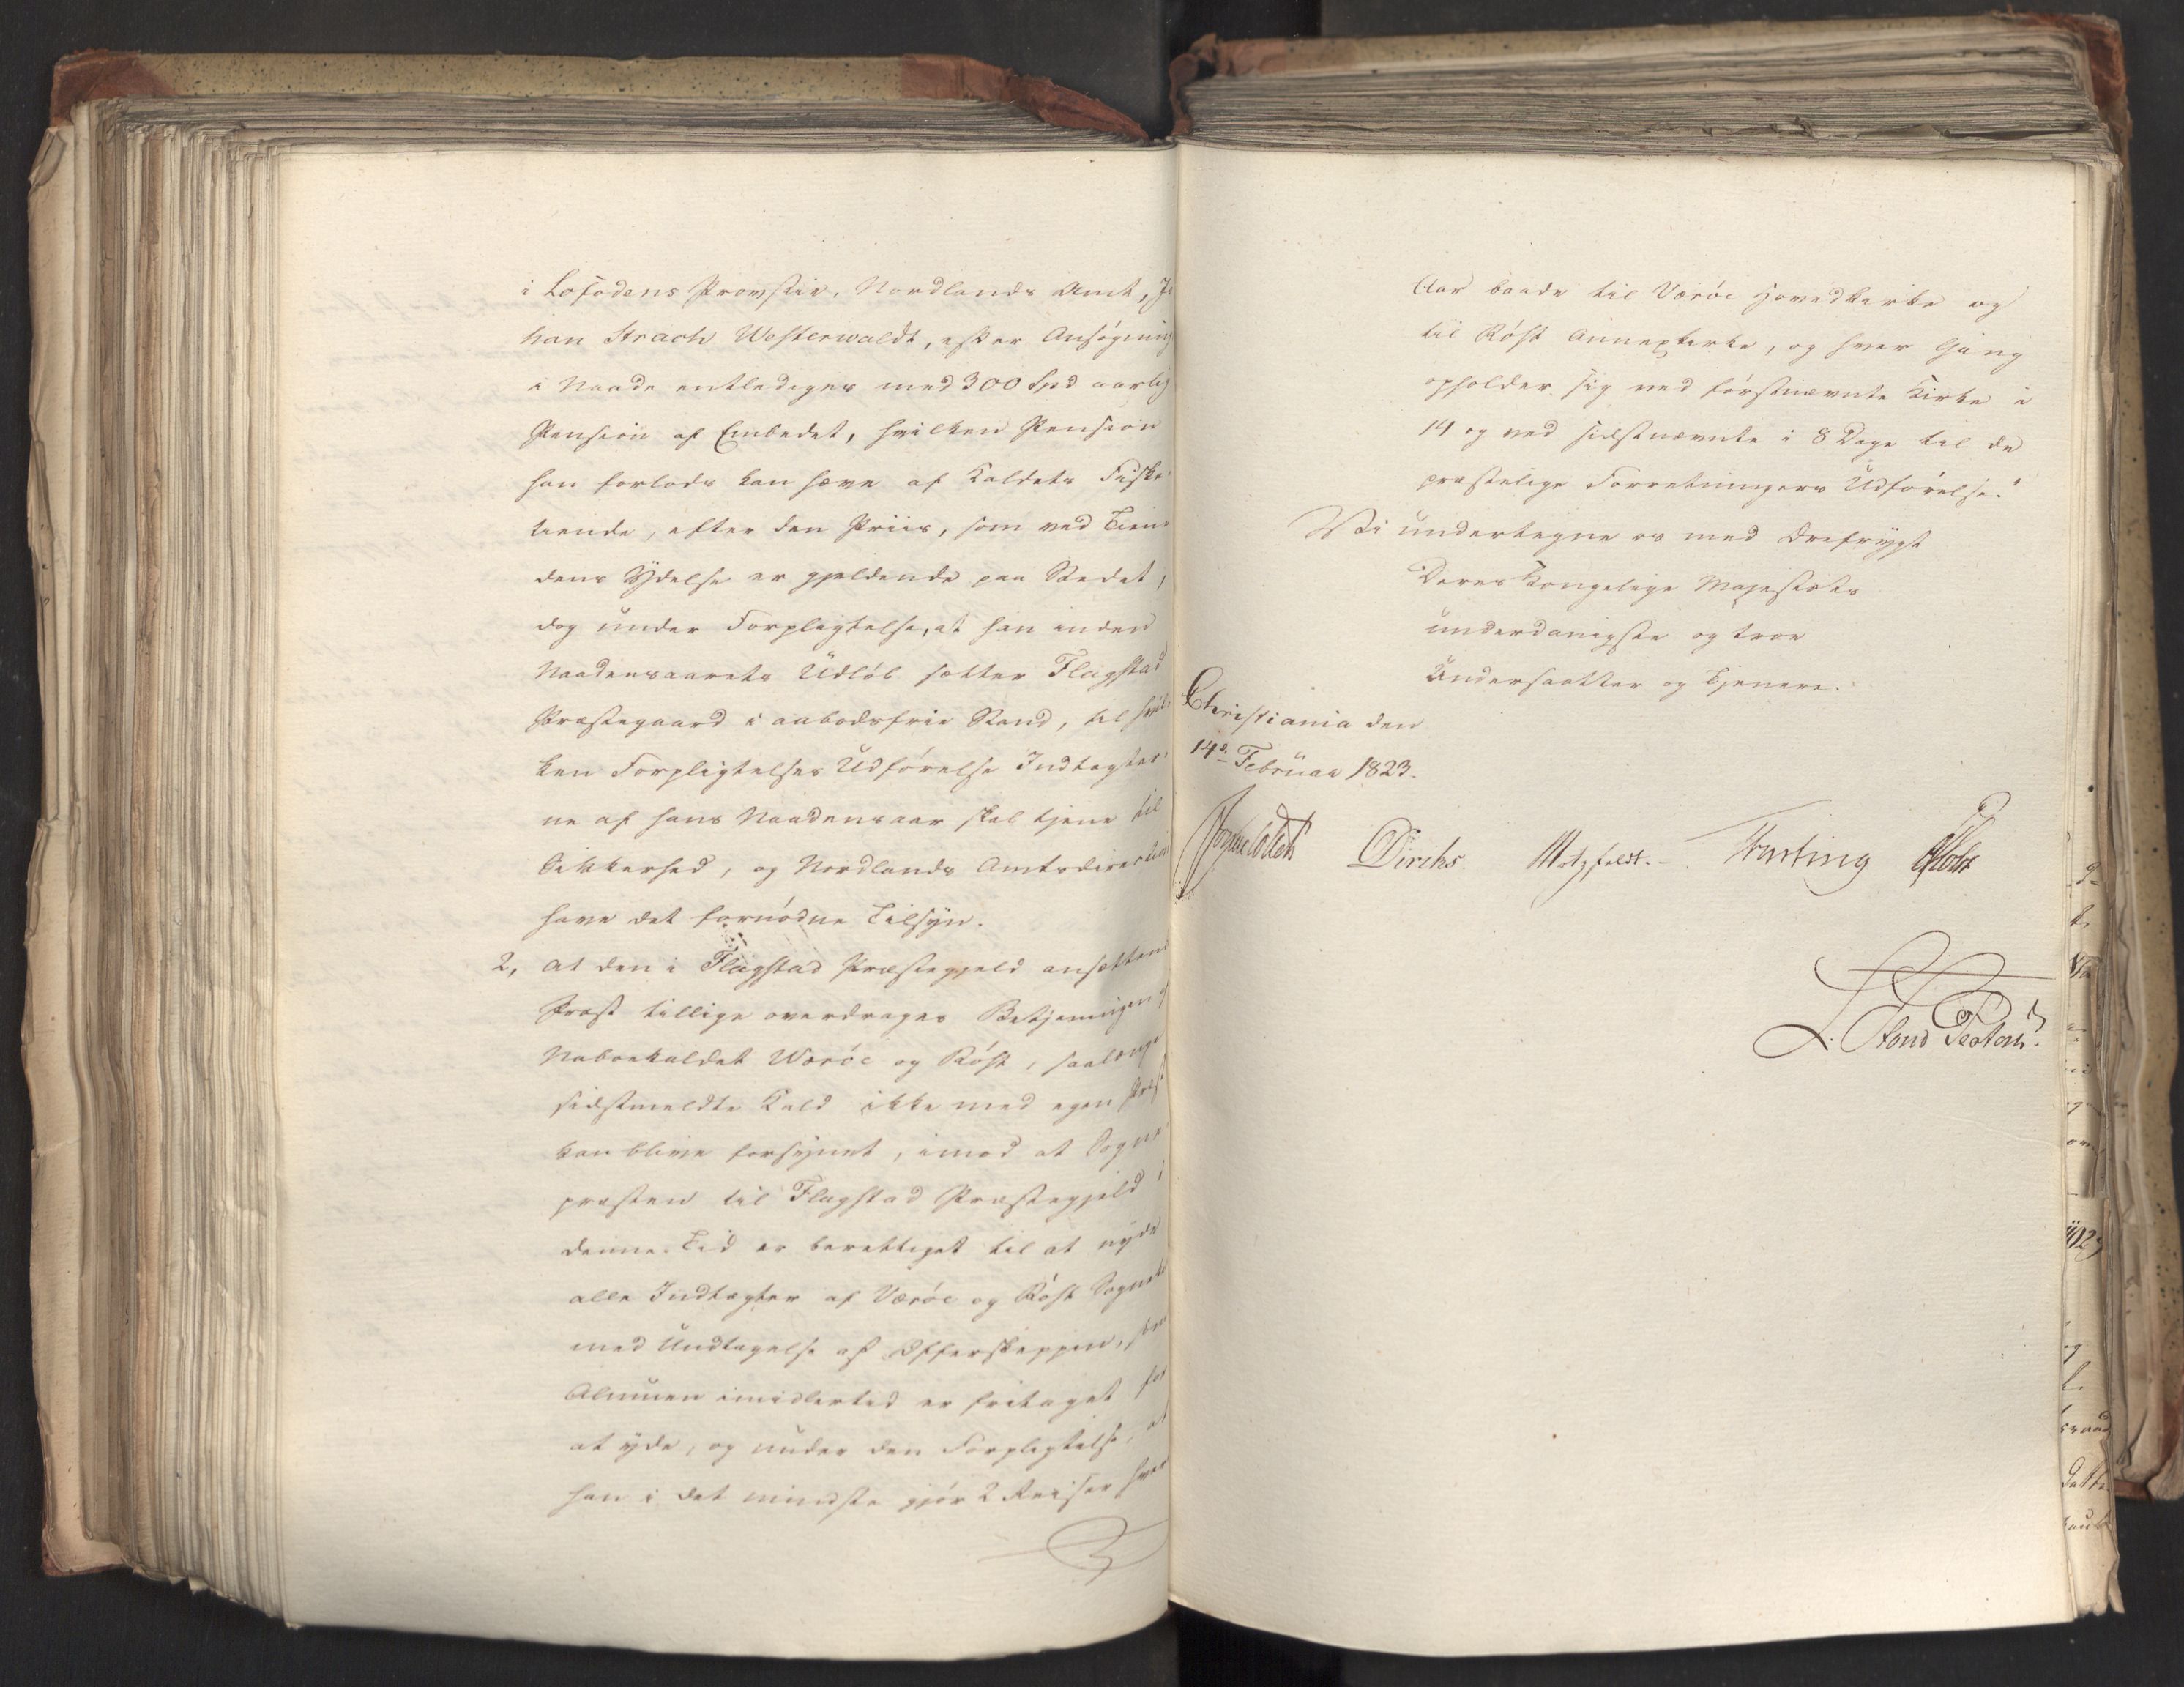 i Lofodens Provstie, Nordlands Amt, Jo
han Strach Westerwaldt, efter Ansøgning
i Naade entlediges med 300 Spd aarlig
Pension af Embedet, hvilken Pension
han forlods kan hæve af Kaldets Fiske-
tiende, efter den Priis, som ved Tien
dens Ydelse er gjeldende paa Stedet,
dog under Forpligtelse, at han inden
Naadensaarets Udløb sætter Flagstad
Præstegaard i aabodsfrie Stand, til hvil-
ken Forpligtelses Udførelse Indtægter-
ne af hans Naadensaar skal tjene til
Sikkerhed, og Nordlands Amtsdirection
have det fornødne Tilsyn.
2, at den i Flagstad Præstegjeld ansættende
Præst tillige overdrages Betjeningen af
Nabokaldet Værøe og Røst, saalænge
sidstmeldte Kald ikke med egen Præst
kan blive forsynet, imod at Sogne-
præsten til Flagstad Præstegjeld i
denne Tid er berettiget til at nyde
alle Indtægter af Værøe og Røst Sognekald
med Undtagelse af Offerskeppen, som
Almuen imidlertid er fritaget for
at yde, og under den Forpligtelse, at
han i det mindste gjør 2 Reiser hver
Aar baade til Værøe Hovedkirke og
til Røst Annexkirke, og hver Gang
opholder sig ved førstnævnte Kirke i
14 og ved sidstnævnte i 8 Dage til de
præstelige Forretningers Udførelse."
Vi undertegne os med Ærefrygt
Deres Kongelige Majestæts
underdanigste og troe
Undersaatter og Tjenere.
Christiania den
14de Februar 1823.
Sommerhielm Diriks. Motzfeldt. Fasting Holst
L. Stoud Platou.